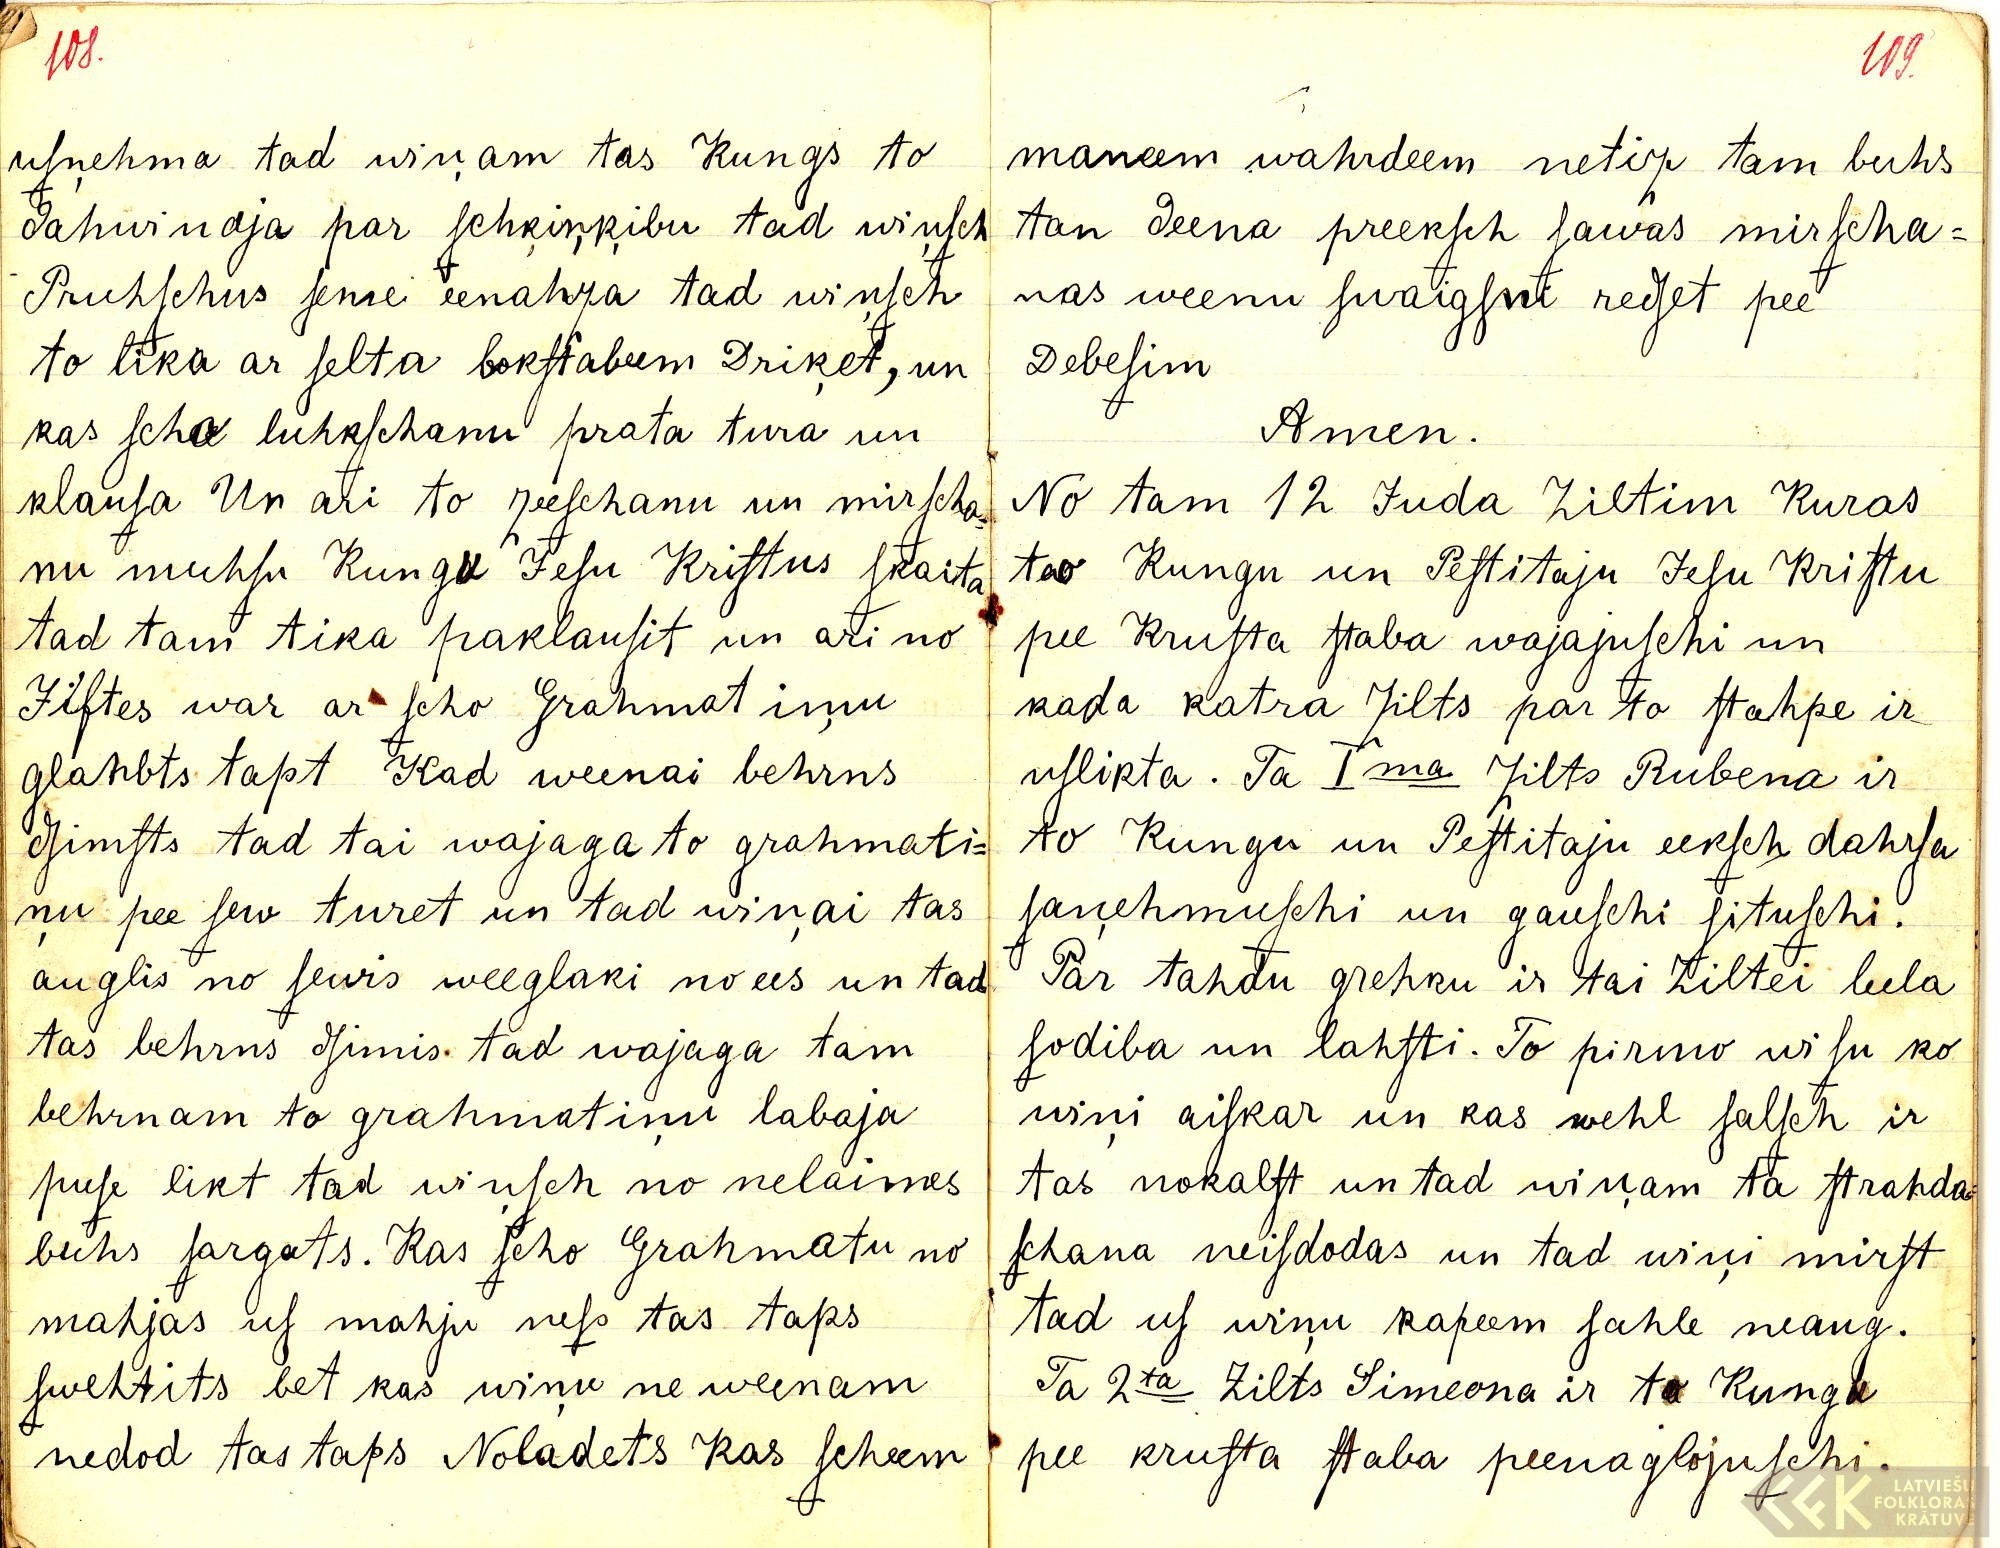 108.
uſņehma tad wiņam tas Kungs to
Dahwinaja par ſchķiņķibu tad wiņſch
Pruhſchus ſeme eenahza tad wiņſch
to lika ar ſelta bokſtabeem Driķet, un
kas ſcha luhkſchanu prata tura un
klauſa Un ari to zeeſchanu un mirſcha-
nu muhſu Kungu Jeſu Kriſtus ſkaita
tad tam tika paklauſit un ari no
Jiftes war ar ſcho Grahmatiņu
glahbts tapt Kad weenai behrns
dſimſts tad tai wajaga to grahmati=
ņu pee ſew turet un tad wiņai tas
auglis no ſewis weeglaki no ees un tad
tas behrns dſimis. tad wajaga tam
behrnam to grahmatiņu labaja
puſe likt tad wiņſch no nelaimes
buhs ſargats. Kas ſcho Grahmatu no
mahjas uſ mahju neſs tas taps
ſwehtits bet kas wiņu ne weenam
nedod tas taps Noladets Kas ſcheem
109.
maneem wahrdeem netiz tam buhs
tan Deena preekſch ſawas mirſcha=
nas weenu ſwaigſni redſet pee
Debeſim
Amen.
No tam 12 Juda Ziltim Kuras
to Kungu un Peſtitaju Jeſu Kriſtu
pee Kruſta ſtaba wajajuſchi un
kada katra Zilts par to ſtahpe ir
uſlikta. Ta I ma Zilts Rubena ir
to Kungu un Peſtitaju eekſch dahrſa
ſaņehmuſchi un gauſchi ſituſchi.
Par tahdu grehku ir tai Ziltei leela
ſodiba un lahſti. To pirmo wiſu ko
wiņi aiſkar un kas wehl ſalſch ir
tas nokalſt un tad wiņam ta ſtrahda=
ſchana neiſdodas un tad wiņi mirſt
tad uſ wiņu kapeem ſahle neaug.
Ta 2ta Zilts Simeona ir to Kungu
pee kruſta ſtaba peenaglojuſchi.
LATVIEŠU
FOLKLORAS
KRĀTUVE